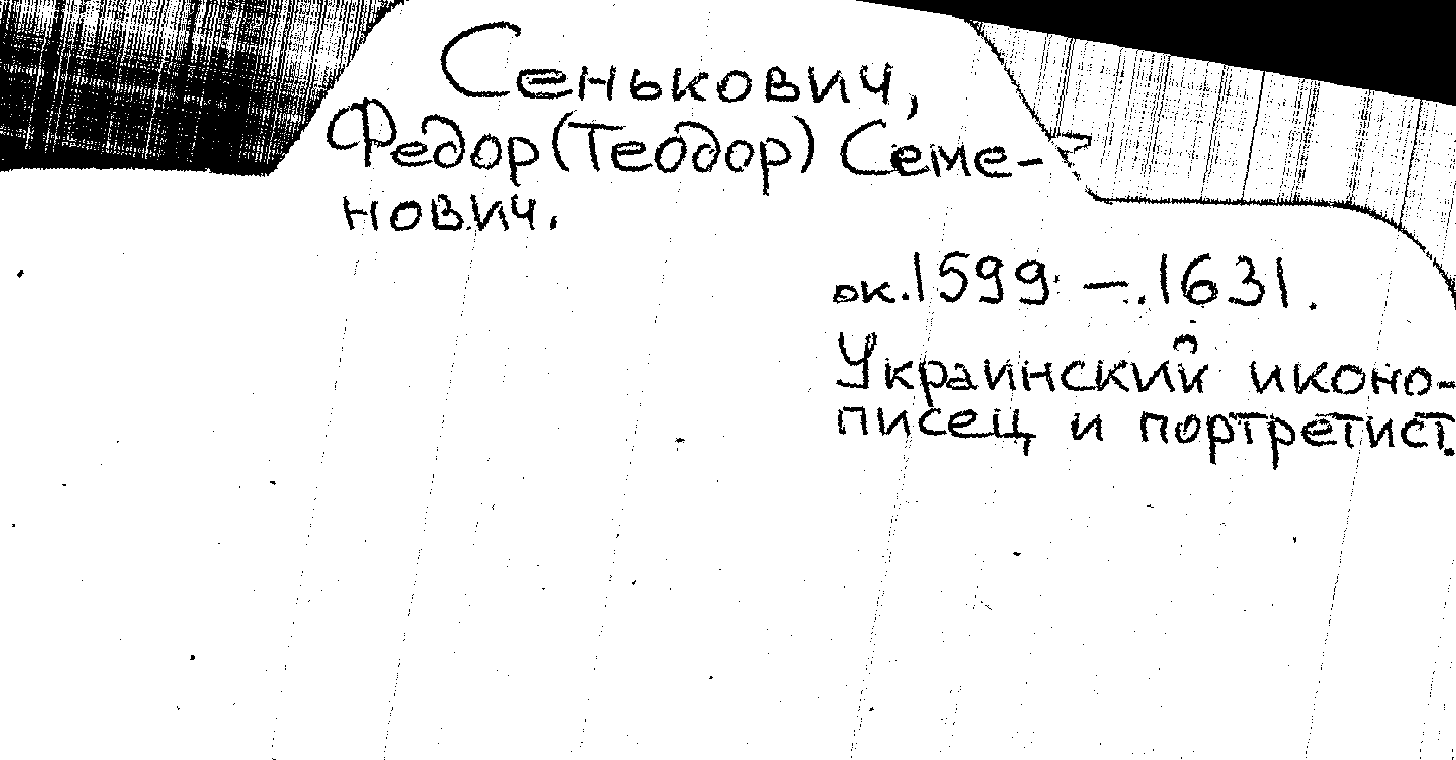 Сенькович,
Федор (Теодор) Семе-
нович.
ок. 1599 – 1631.
Украинский иконо-
писец и портретист.